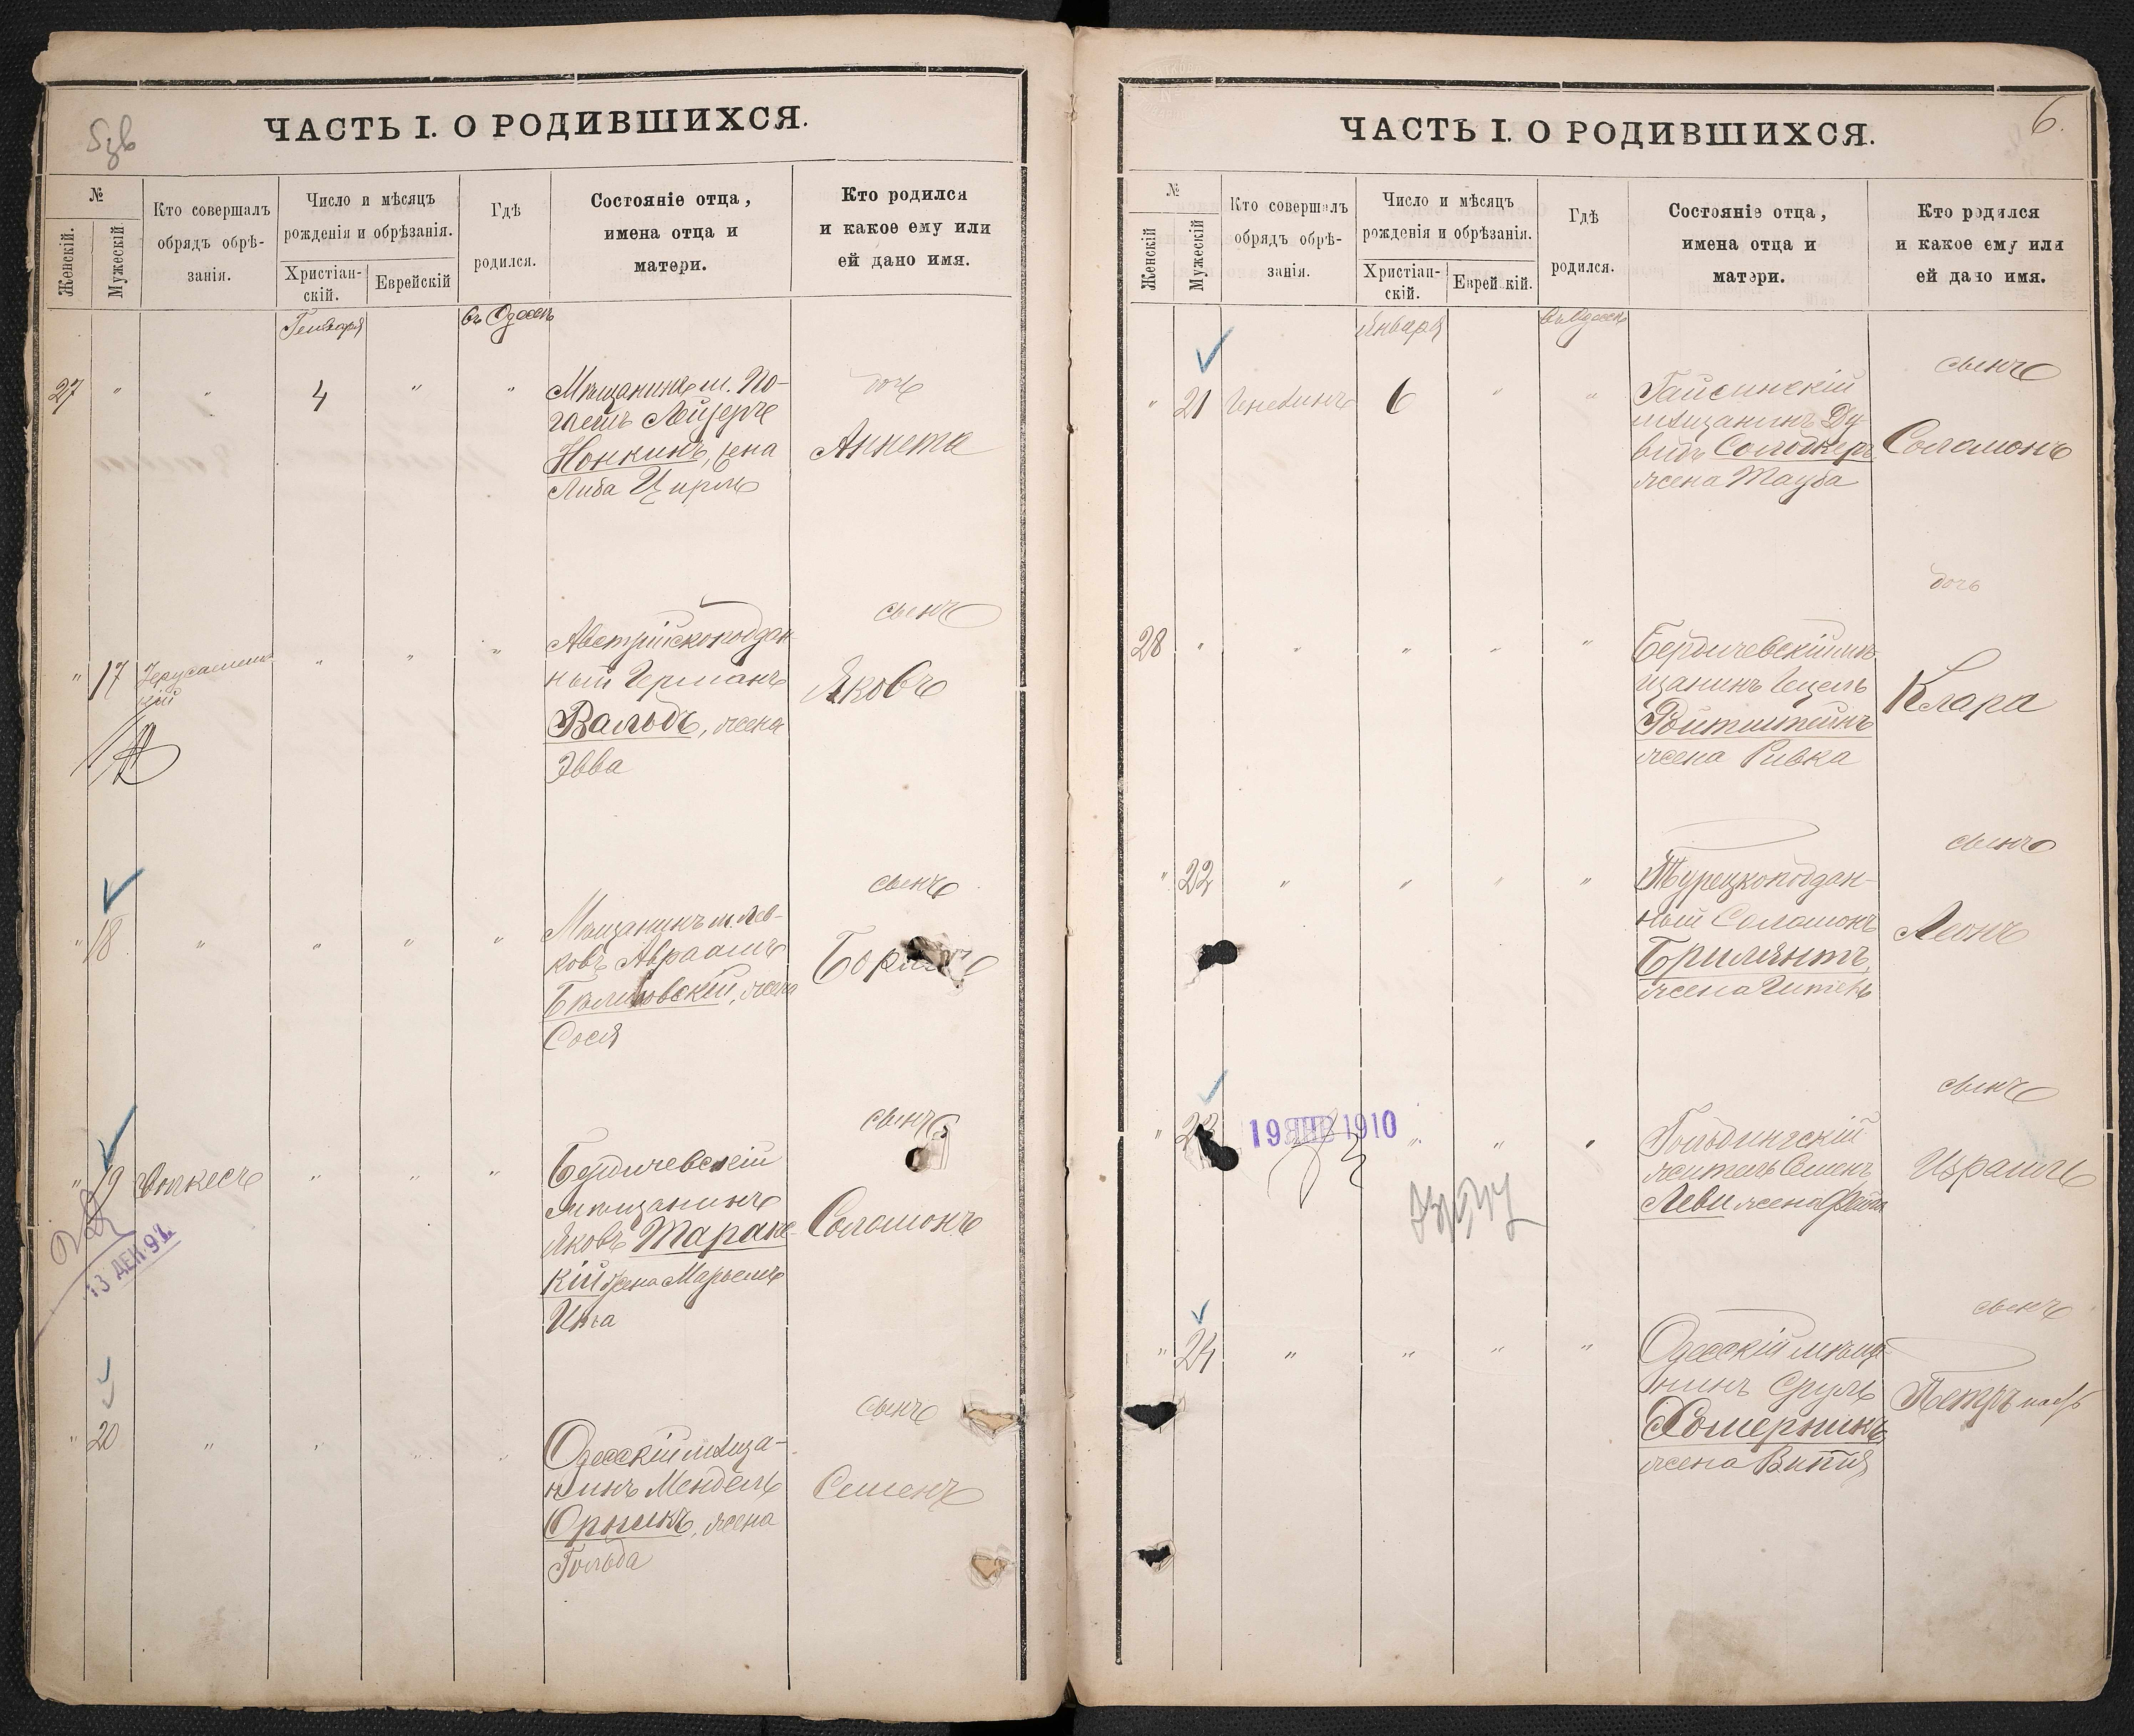 ЧАСТЬ I. О РОДИВШИХСЯ.
№
Женскій.
Мужескій
Кто совершалъ
обрядъ обрѣ-
занія.
Число и мѣсяцъ
рожденія и обрѣзанія.
Христіан-
скій.
Еврейскій
Гдѣ
родился.
Состояніе отца,
имена отца и
матери.
Кто родился
и какое ему или
ей дано имя.
Генваря
въ Одессѣ
27 " " 4 " "
Мѣщанинъ м. По-
Лейзеръ
Нонкинъ, жена
Либа Цирль
дочь
Аннета
" 17 Іерусалим-
скій " " "
Австрійскоподдан-
ный Германъ
Вальдъ, жена
Эвва
сынъ
Яковъ
" 18 " " " "
Мѣщанинъ м. Лев-
ковъ Авраамъ
жена
Сося
сынъ
" 19 Волкесъ " " "
13 ДЕК 9
Бердичевскій
мѣщанинъ
Яковъ Таране-
кій жена Марьемъ
сынъ
Соломонъ
" 20 " " " "
Одесскій мѣща-
нинъ Мендель
Орникъ, жена
Гольда
сынъ
Семенъ
6.
ЧАСТЬ I. О РОДИВШИХСЯ.
№
Женскій
Мужескій
Кто совершалъ
обрядъ обрѣ-
занія.
Число и мѣсяцъ
рожденія и обрѣзанія.
Христіан-
скій.
Еврейскій.
Гдѣ
родился.
Состояніе отца,
имена отца и
матери.
Кто родился
и какое ему или
ей дано имя.
Января
въ Одессѣ
" 21 6 " "
Гайсинскій
мѣщанинъ Ду-
видъ Солодкеръ
жена Тауба
сынъ
Соломонъ
28 " " " " "
Бердичевскій мѣ-
щанинъ Гецель
Ройтштейнъ
жена Ривка
дочь
Клара
" 22 " " " "
Турецкоподдан-
ный Соломонъ
Брилянтъ,
жена Гитель
сынъ
Леонъ
" 23 19 ЯНВ 1910 " " "
Гольдингскій
житель Семенъ
Леви жена
сынъ
Израиль
" 24 " " " "
Одесскій мѣща-
нинъ Сруль
Хомерникъ,
жена
сынъ
Петръ